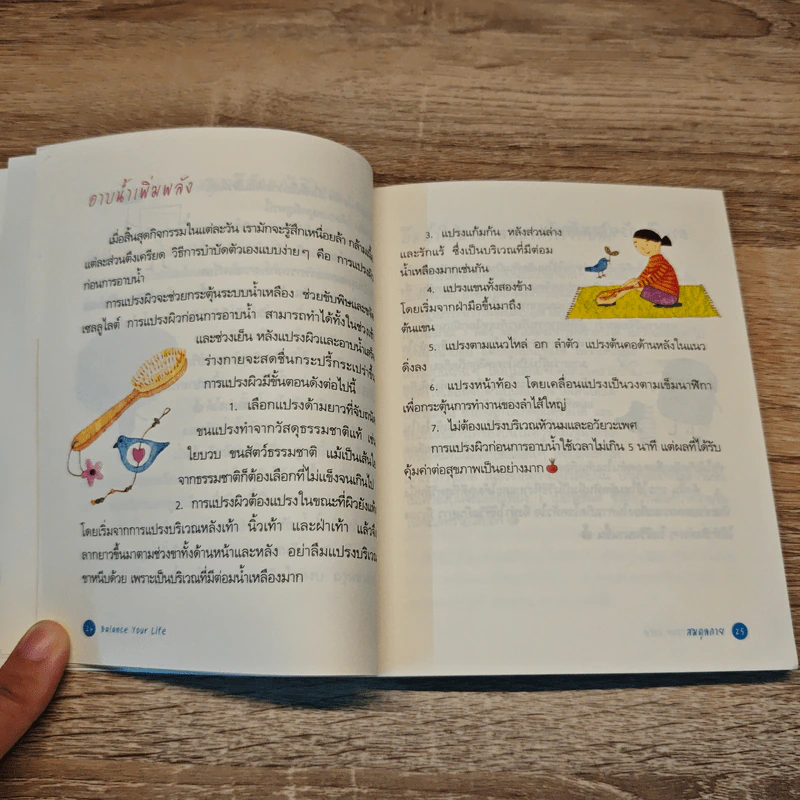 อาบน้ำเพิ่มพลัง
เมื่อสิ้นสุดกิจกรรมในแต่ละวัน เรามักจะรู้สึกเหนื่อยล้า กล้ามเนื้อ
แต่ละส่วนตึงเครียด วิธีการบำบัดตัวเองแบบง่ายๆ คือ การแปรงผิว
ก่อนการอาบน้ำ
การแปรงผิวจะช่วยกระตุ้นระบบน้ำเหลือง ช่วยขับพิษและขจัด
เซลลูไลต์ การแปรงผิวก่อนการอาบน้ำ สามารถทำได้ทั้งในช่วงเช้า
และช่วงเย็น หลังแปรงผิวและอาบน้ำเสร็จ
ร่างกายจะสดชื่นกระปรี้กระเปร่าขึ้น
การแปรงผิวมีขั้นตอนดังต่อไปนี้
1. เลือกแปรงด้ามยาวที่จับถนัด
ขนแปรงทำจากวัสดุธรรมชาติแท้ เช่น
ใยบวบ ขนสัตว์ธรรมชาติ แม้เป็นเส้นใย
จากธรรมชาติก็ต้องเลือกที่ไม่แข็งจนเกินไป
2. การแปรงผิวต้องแปรงในขณะที่ผิวยังแห้ง
โดยเริ่มจากการแปรงบริเวณหลังเท้า นิ้วเท้า และฝ่าเท้า แล้วจึง
ลากยาวขึ้นมาตามช่วงขาทั้งด้านหน้าและหลัง อย่าลืมแปรงบริเวณ
ขาหนีบด้วย เพราะเป็นบริเวณที่มีต่อมน้ำเหลืองมาก
24 Balance Your Life
3. แปรงแก้มก้น หลังส่วนล่าง
และรักแร้ ซึ่งเป็นบริเวณที่มีต่อม
น้ำเหลืองมากเช่นกัน
4. แปรงแขนทั้งสองข้าง
โดยเริ่มจากฝ่ามือขึ้นมาถึง
ต้นแขน
5. แปรงตามแนวไหล่ อก ลำตัว แปรงต้นคอด้านหลังในแนว
ดิ่งลง
6. แปรงหน้าท้อง โดยเคลื่อนแปรงเป็นวงตามเข็มนาฬิกา
เพื่อกระตุ้นการทำงานของลำไส้ใหญ่
7. ไม่ต้องแปรงบริเวณหัวนมและอวัยวะเพศ
การแปรงผิวก่อนการอาบน้ำใช้เวลาไม่เกิน 5 นาที แต่ผลที่ได้รับ
คุ้มค่าต่อสุขภาพเป็นอย่างมาก
สมดุลกาย 25